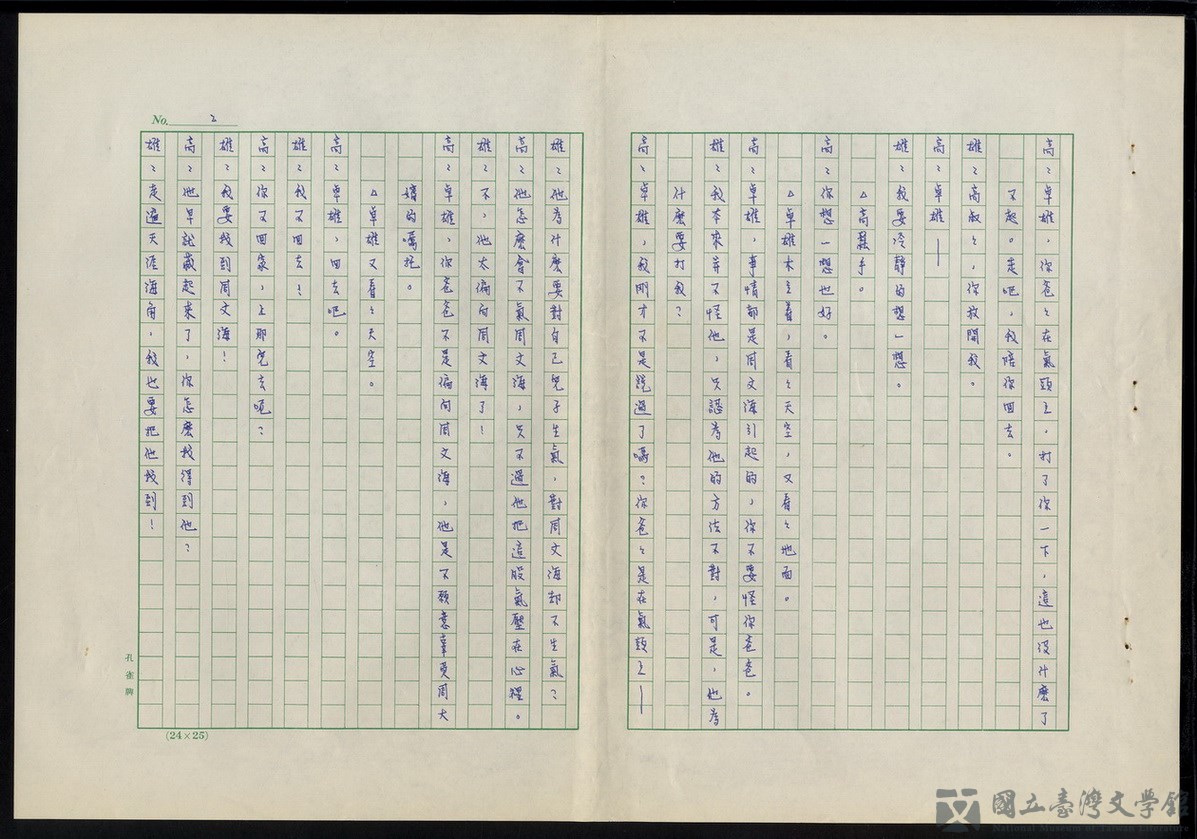 高:卓雄,你爸々在氣頭上,打了你一下,這也沒什麼了
不起。走吧,我陪你回去。
雄:高叔々,你放開我。
高:卓雄——
雄:我要冷靜的想一想。
△高鬆手。
高:你想一想也好。
△卓雄木立着,看々天空,又看々地面。
高:卓雄,事情都是周文海引起的,你不要怪你爸爸。
雄:我本來并不怪他,只認為他的方法不對,可是,他為
什麼要打我?
高:卓雄,我剛才不是說過了嗎?你爸々是在氣頭上——
雄:他為什麼要對自己兒子生氣,對周文海却不生氣?
高:他怎麼會不氣周文海,只不過他把這股氣壓在心裡。
雄:不,他太偏向周文海了!
高:卓雄,你爸爸不是偏向周文海,他是不願意辜負周大
嬸的囑托。
△卓雄又看々天空。
高:卓雄,回去吧。
雄:我不回去!
高:你不回家,上那兒去呢?
雄:我要找到周文海!
高:他早就藏起來了,你怎麼找得到他?
雄:走遍天涯海角,我也要把他找到!
No. 2
孔雀牌
(24×25)
國立臺灣文學館
National Museum of Taiwan Literature